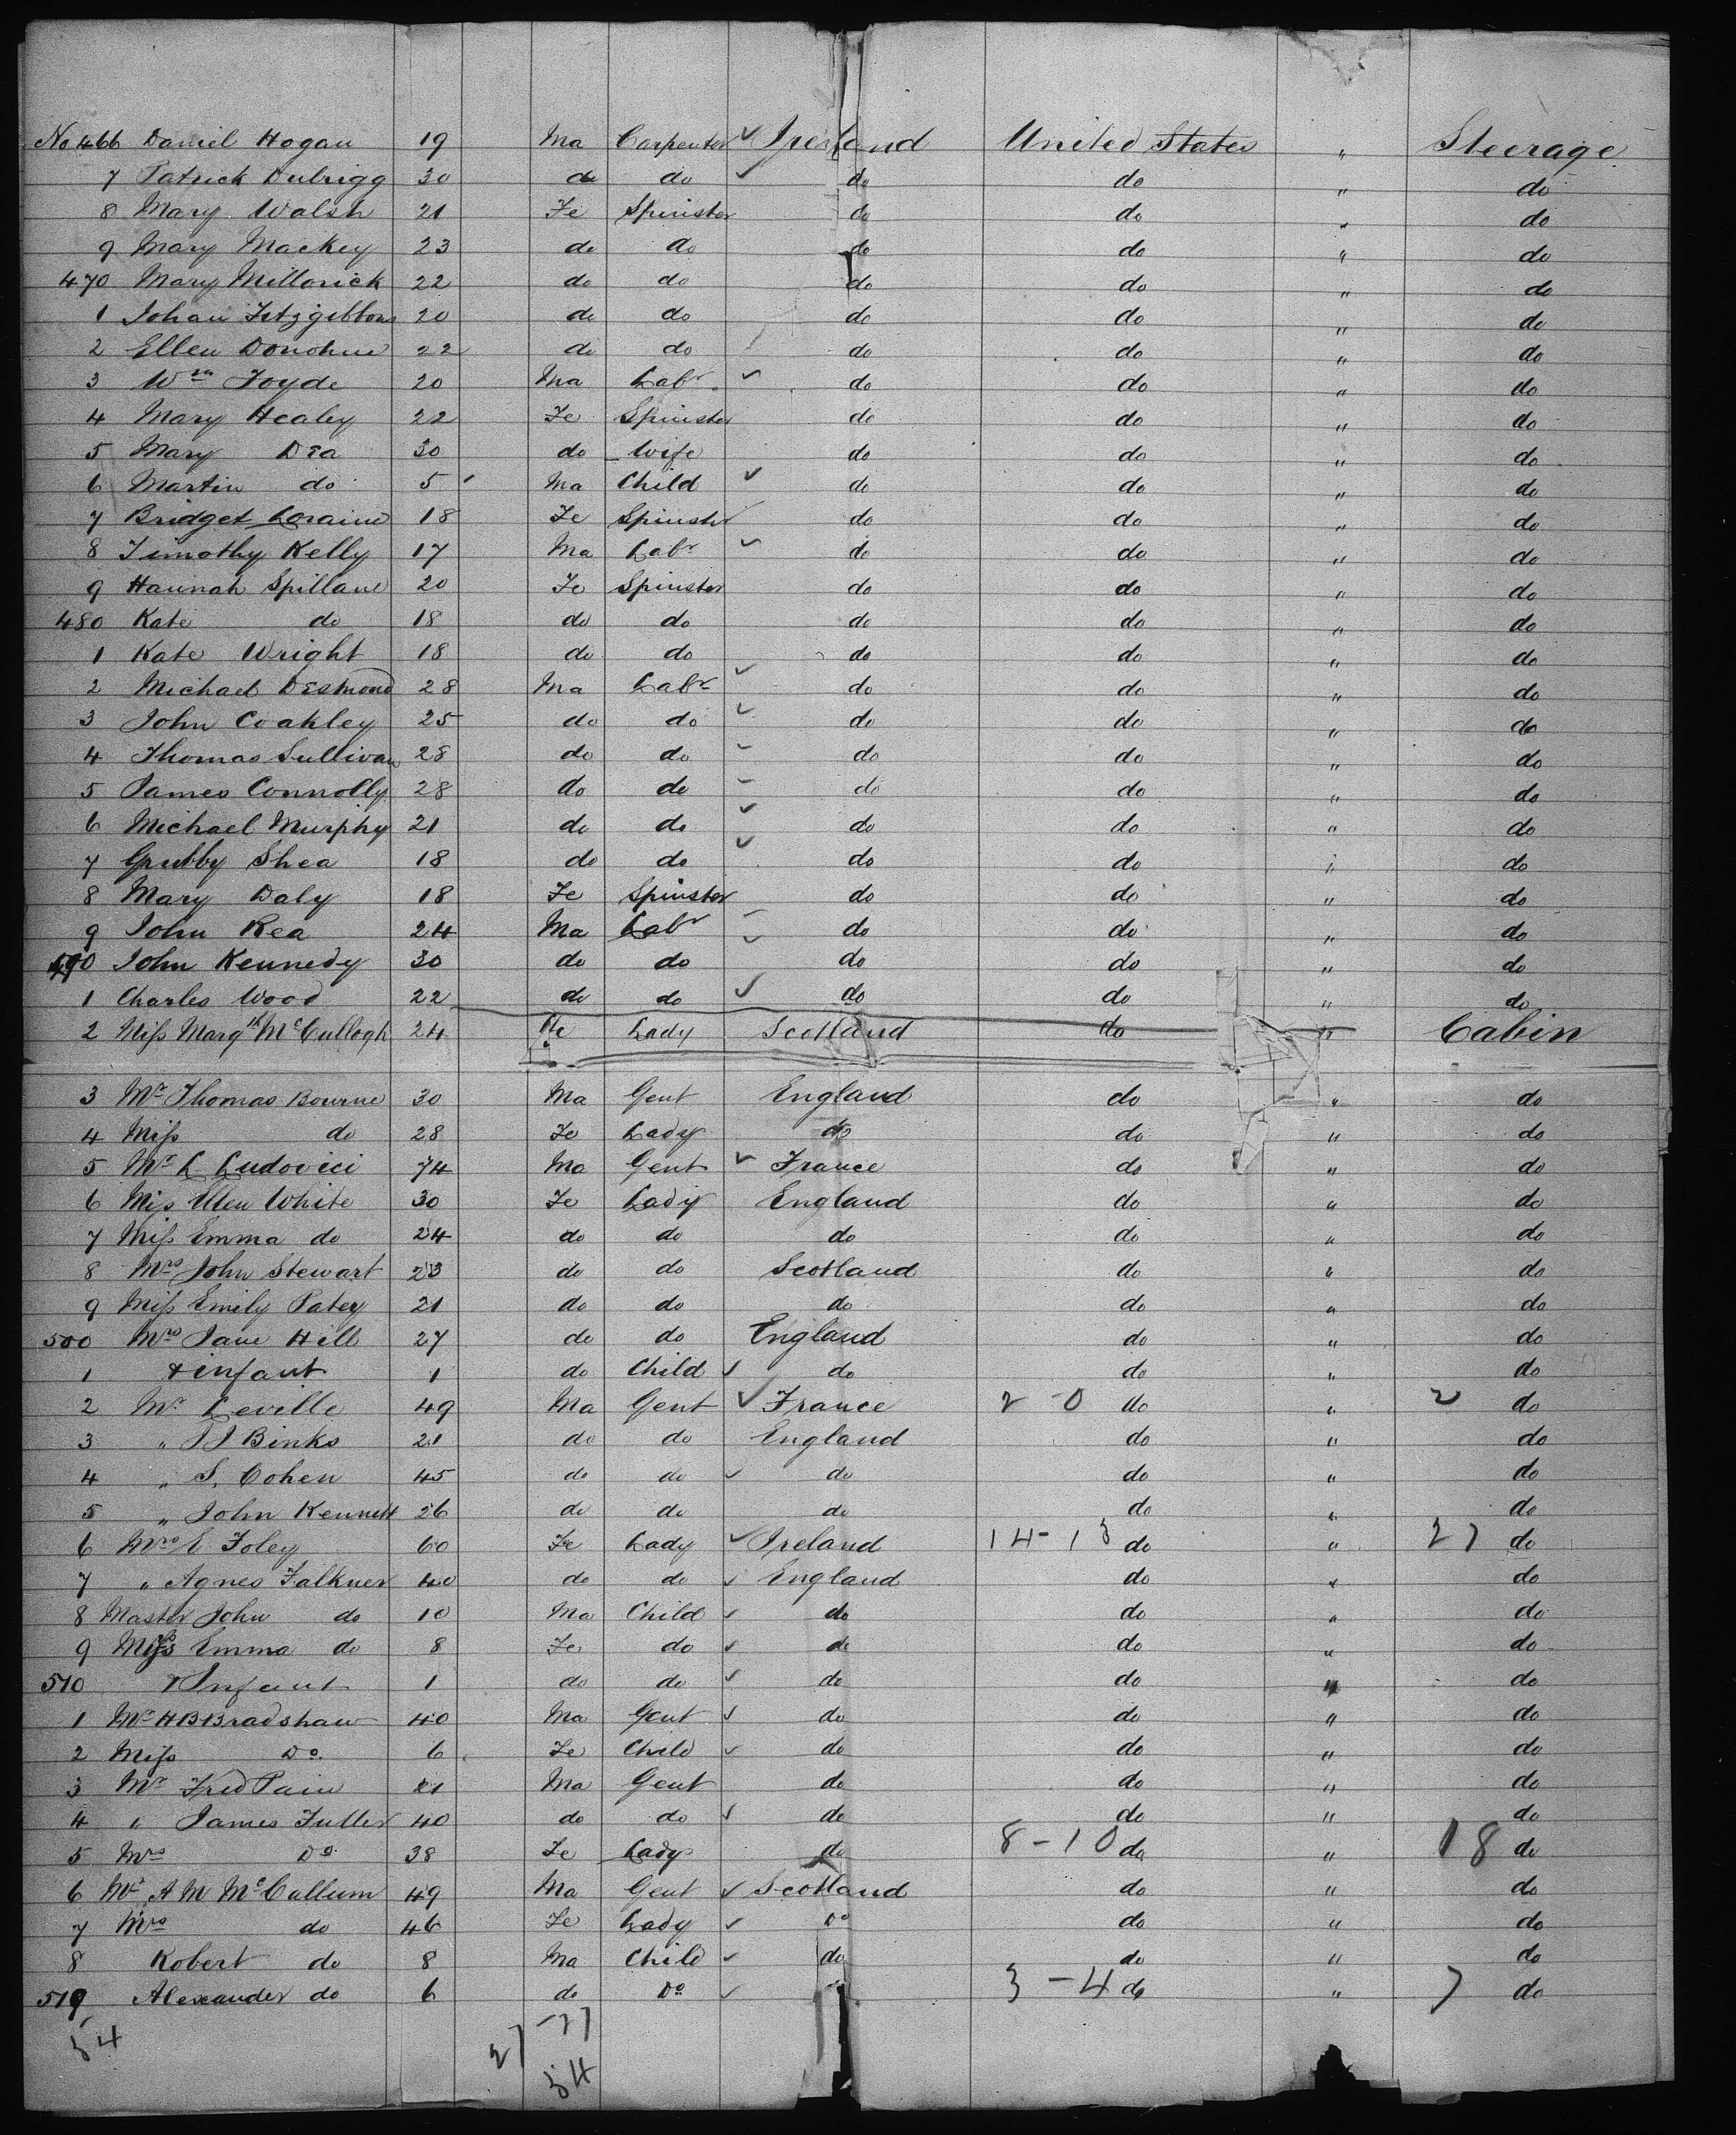 No 466 Daniel Hogan 19 Ma Carpenter ✓ Ireland United States " Steerage
7 Patrick Dubrigg 30 do do ✓ do do " do
8 Mary Walsh 21 Fe Spinster do do " do
9 Mary Mackey 23 do do do do " do
470 Mary Millorick 22 do do do do " do
1 Johan Fitzgibbons 20 do do do do " do
2 Ellen Donohue 22 do do do do " do
3 Wm Foyde 20 Ma Labr ✓ do do " do
4 Mary Healey 22 Fe Spinster do do " do
5 Mary Dea 30 do Wife do do " do
6 Martin do 5 Ma Child ✓ do do " do
7 Bridget Loraine 18 Fe Spinster do do " do
8 Timothy Kelly 17 Ma Labr ✓ do do " do
9 Hannah Spillane 20 Fe Spinster do do " do
480 Kate do 18 do do do do " do
1 Kate Wright 18 do do do do " do
2 Michael Desmond 28 Ma Labr ✓ do do " do
3 John Coakley 25 do do ✓ do do " do
4 Thomas Sullivan 28 do do ✓ do do " do
5 James Connolly 28 do do ✓ do do " do
6 Michael Murphy 21 do do ✓ do do " do
7 Grubby Shea 18 do do ✓ do do " do
8 Mary Daly 18 Fe Spinster do do " do
9 John Rea 24 Ma Labr ✓ do do " do
490 John Kennedy 30 do do ✓ do do " do
1 Charles Wood 22 do do ✓ do do " do
2 Miss Margt McCullogh 24 Fe Lady Scotland do " Cabin
3 Mr Thomas Bourne 30 Ma Gent England do " do
4 Miss do 28 Fe Lady do do " do
5 Mr L Ludovici 74 Ma Gent ✓ France do " do
6 Miss Ellen White 30 Fe Lady England do " do
7 Miss Emma do 24 do do do do " do
8 Mrs John Stewart 23 do do Scotland do " do
9 Miss Emily Patey 21 do do do do " do
500 Mrs Jane Hill 27 do do England do " do
1 & infant 1 do Child ✓ do do " do
2 Mr Leville 49 Ma Gent ✓ France 2-0 do " 2 do
3 " Binks 21 do do England do " do
4 " S. Cohen 45 do do ✓ do do " do
5 " John Kennett 26 do do do do " do
6 Mrs E Foley 60 Fe Lady ✓ Ireland 14-13 do " 27 do
7 " Agnes Falkner 40 do do ✓ England do " do
8 Master John do 10 Ma Child ✓ do do " do
9 Miss Emma do 8 Fe do ✓ do do " do
510 & Infant 1 do do ✓ do do " do
1 Mr H B Bradshaw 40 Ma Gent ✓ do do " do
2 Miss Do 6 Fe Child ✓ do do " do
3 Mr Fred Pain 21 Ma Gent do do " do
4 " James Fuller 40 do do ✓ do do " do
5 Mrs Do 38 Fe Lady do 8-10 do " 18 do
6 Mr A M McCallum 49 Ma Gent ✓ Scotland do " do
7 Mrs do 46 Fe Lady ✓ Do do " do
8 Robert do 8 Ma Child ✓ do do " do
519 Alexander do 6 do Do ✓ do 3-4 do " 7 do
54 27-27
54